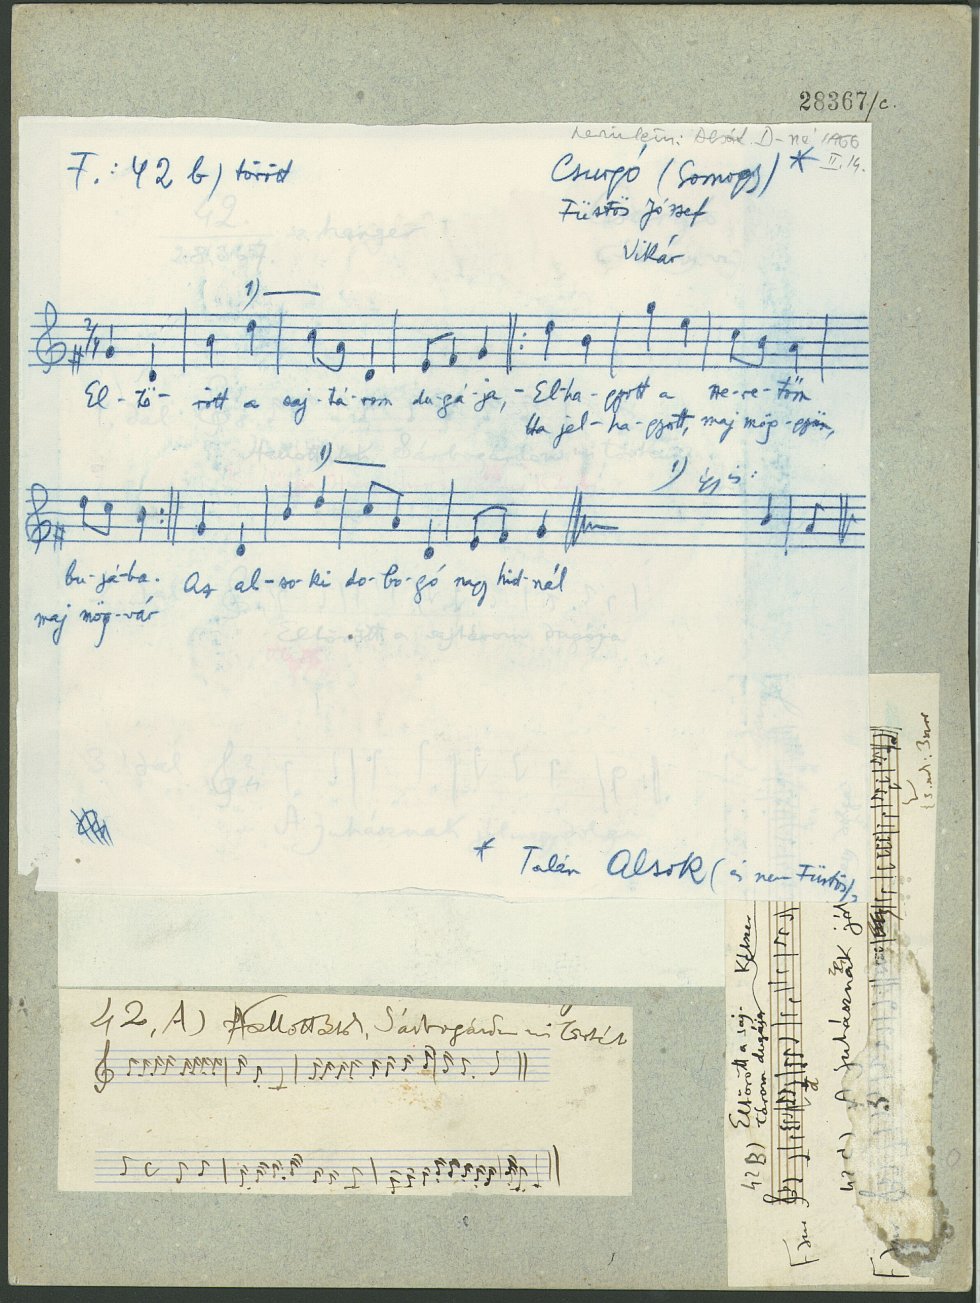 28367/c.
D-né 1966
II. 14.
F.: 42 b) törött
Csurgó (Somogy) *
Füstös József
Vikár
1)
2/4
El-tö-rött a saj-tá-rom du-gá-ja, - El-ha-gyott a sze-re-tőm
Ha jel-ha-gyott, maj mög-gyün,
1)
1) így is:
bu-já-ba. Az al-so-ki do-bo-gó nagy hid-nál
maj mög-vár
* Talán Alsok (és nem Füstös).
42, A) Hallottátok, Sárbogárdon mi történt
42 B) Eltörött a saj-
tárom dugája
A juhásznak jól